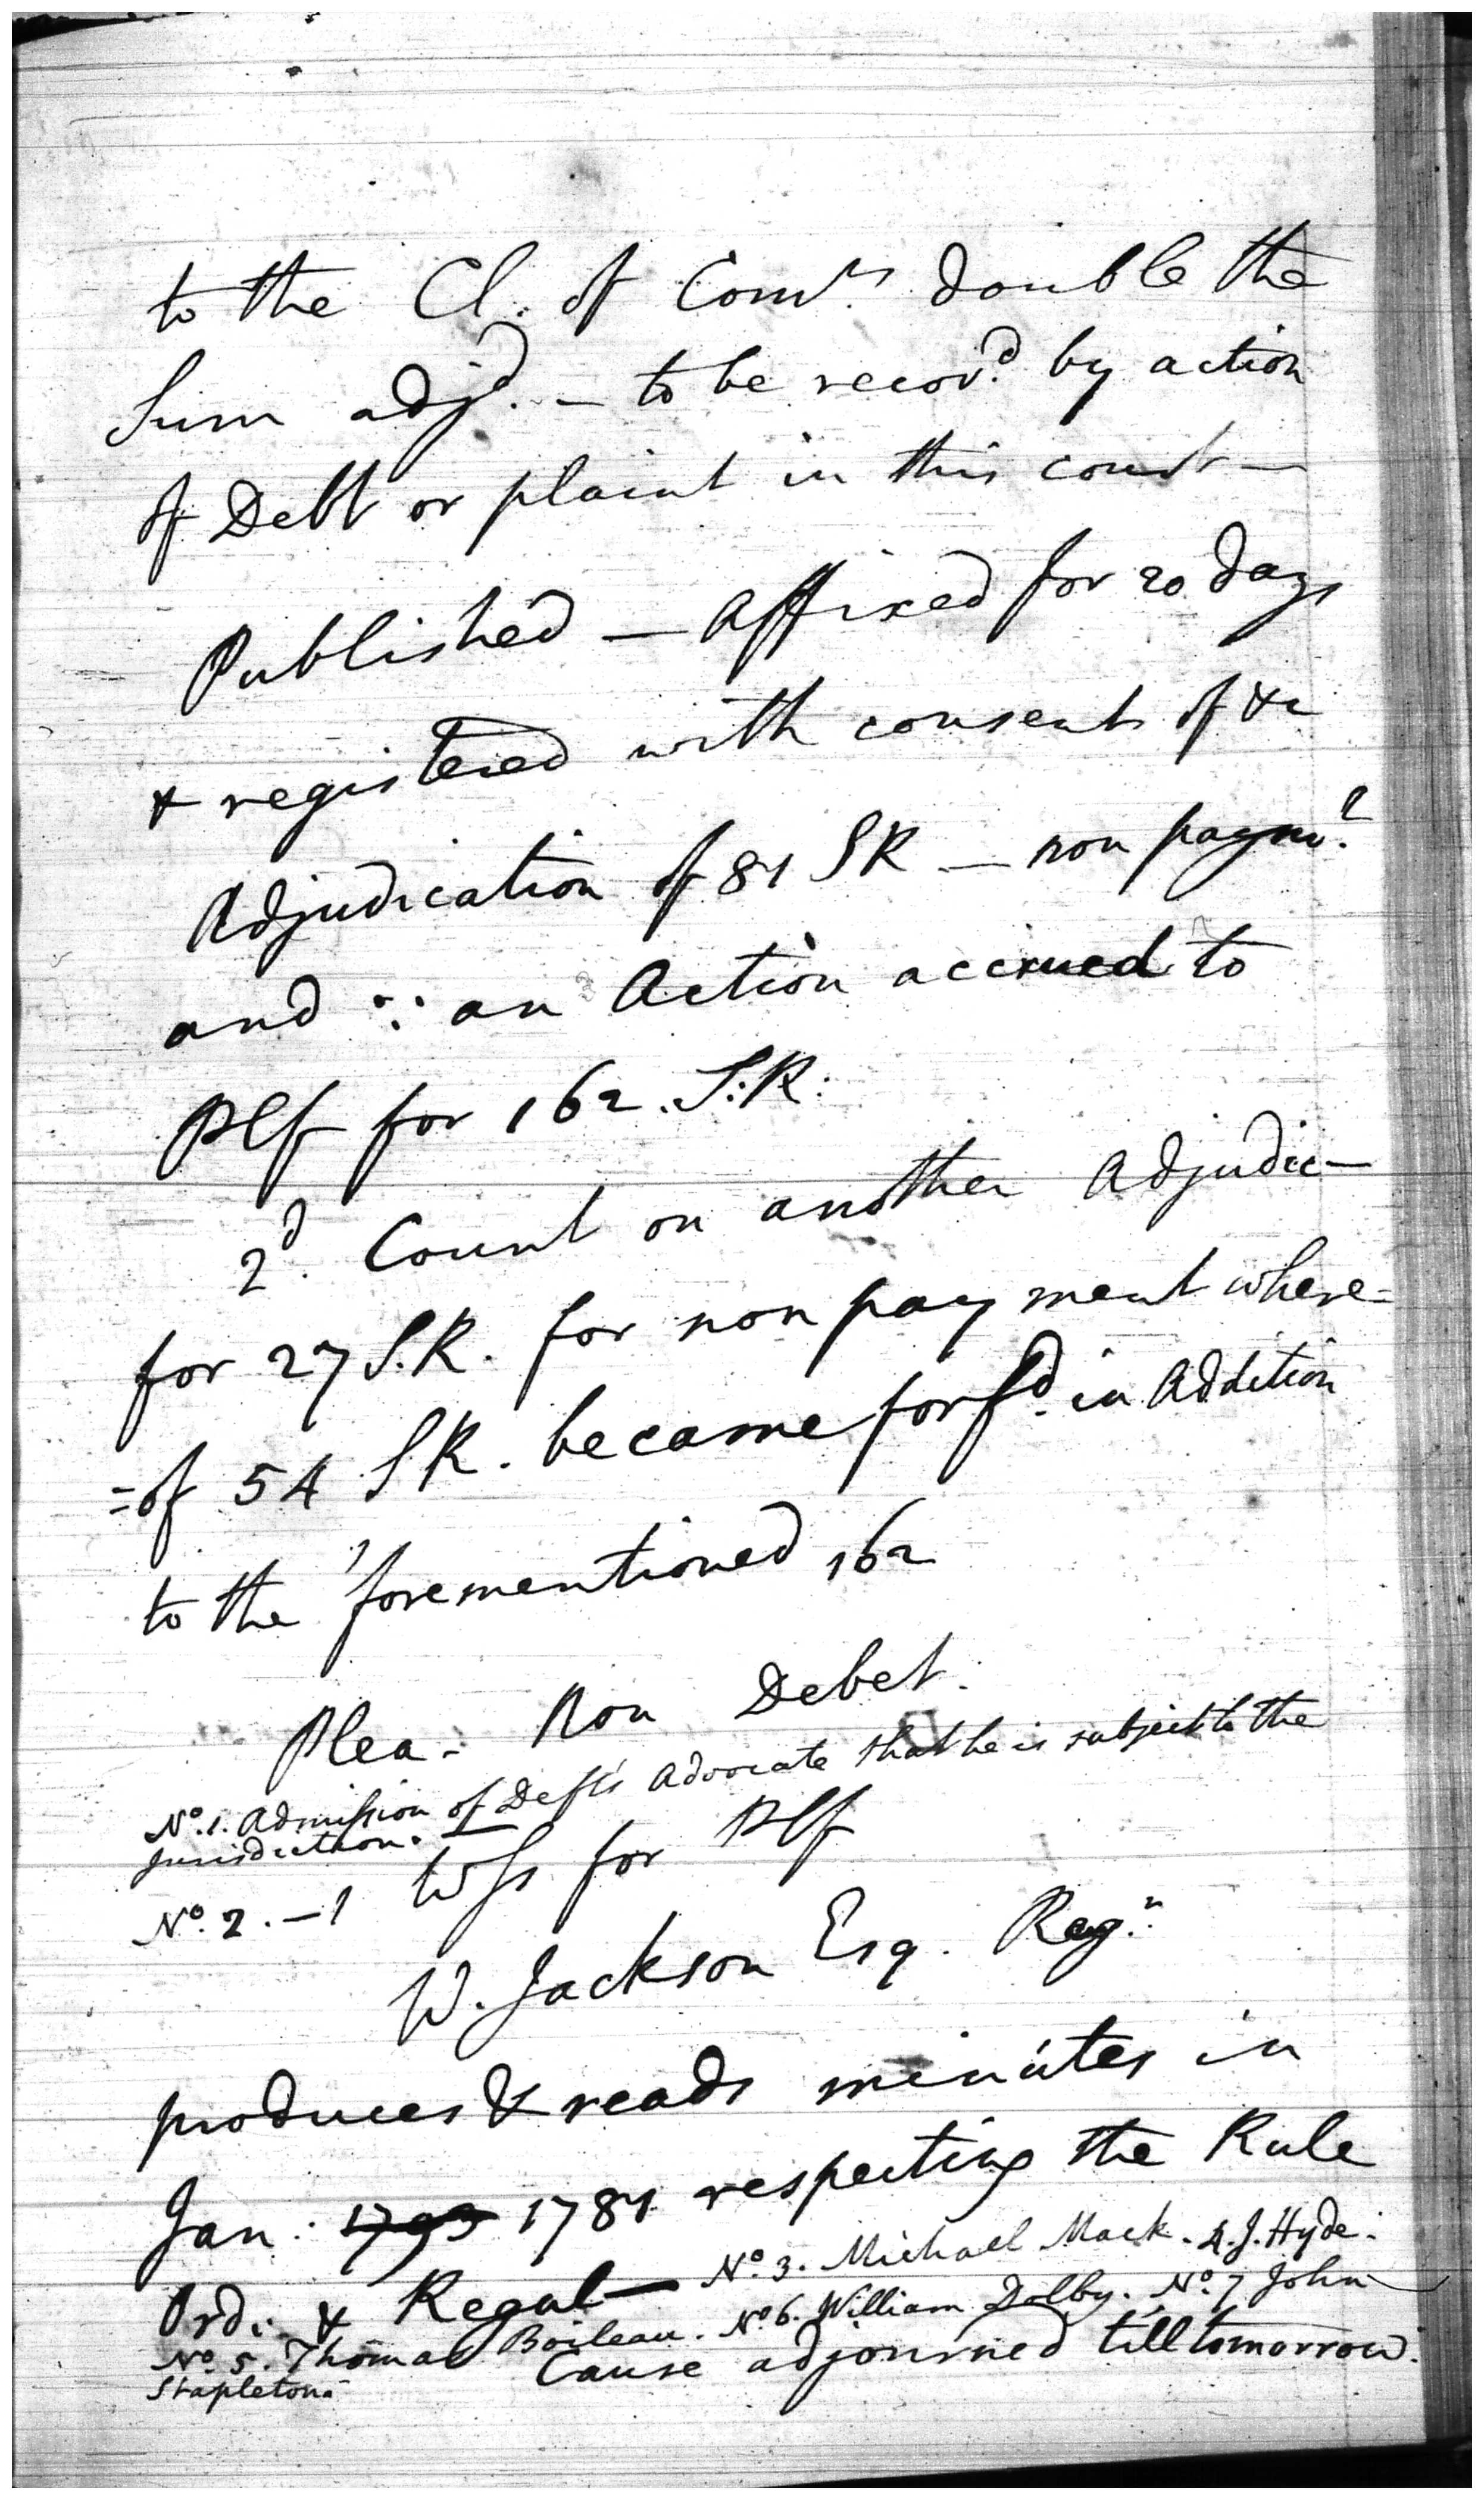 to the Cl. of Comrs. double the
Sum adjd. — to be recovd. by action
of Debt or plaint in this court —
Published — affixed for 20 days
& registered with consent of &c
Adjudication of 81 SR — non paymt.
and ∵ an Action accrued to
Plf for 162. S:R:
2d. Count on another Adjudic—
for 27 S.R. for non payment where=
=of 54 SR. became forfd. in Addition
to the 'forementioned 162
Plea - Non Debet.
No. 1. Admission of Defts Advocate that he is subject to the
Jurisdiction. —
No. 2. — 1 Wss for Plf
W. Jackson Esq. Regr.
produces & reads minutes in
Jan: 1793 1781 respecting the Rule
Ord: & Regul— No. 3. Michael Mack. 4. J. Hyde.
No. 5. Thomas Boileau. No. 6. William Dolby. No. 7 John
Stapleton. Cause adjourned till tomorrow.